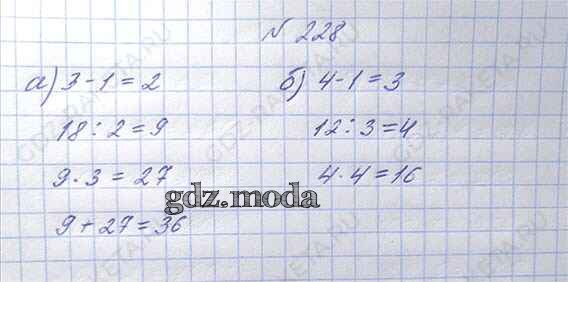 № 228
а) 3 - 1 = 2
18 : 2 = 9
9 · 3 = 27
9 + 27 = 36
б) 4 - 1 = 3
12 : 3 = 4
4 · 4 = 16
gdz.moda